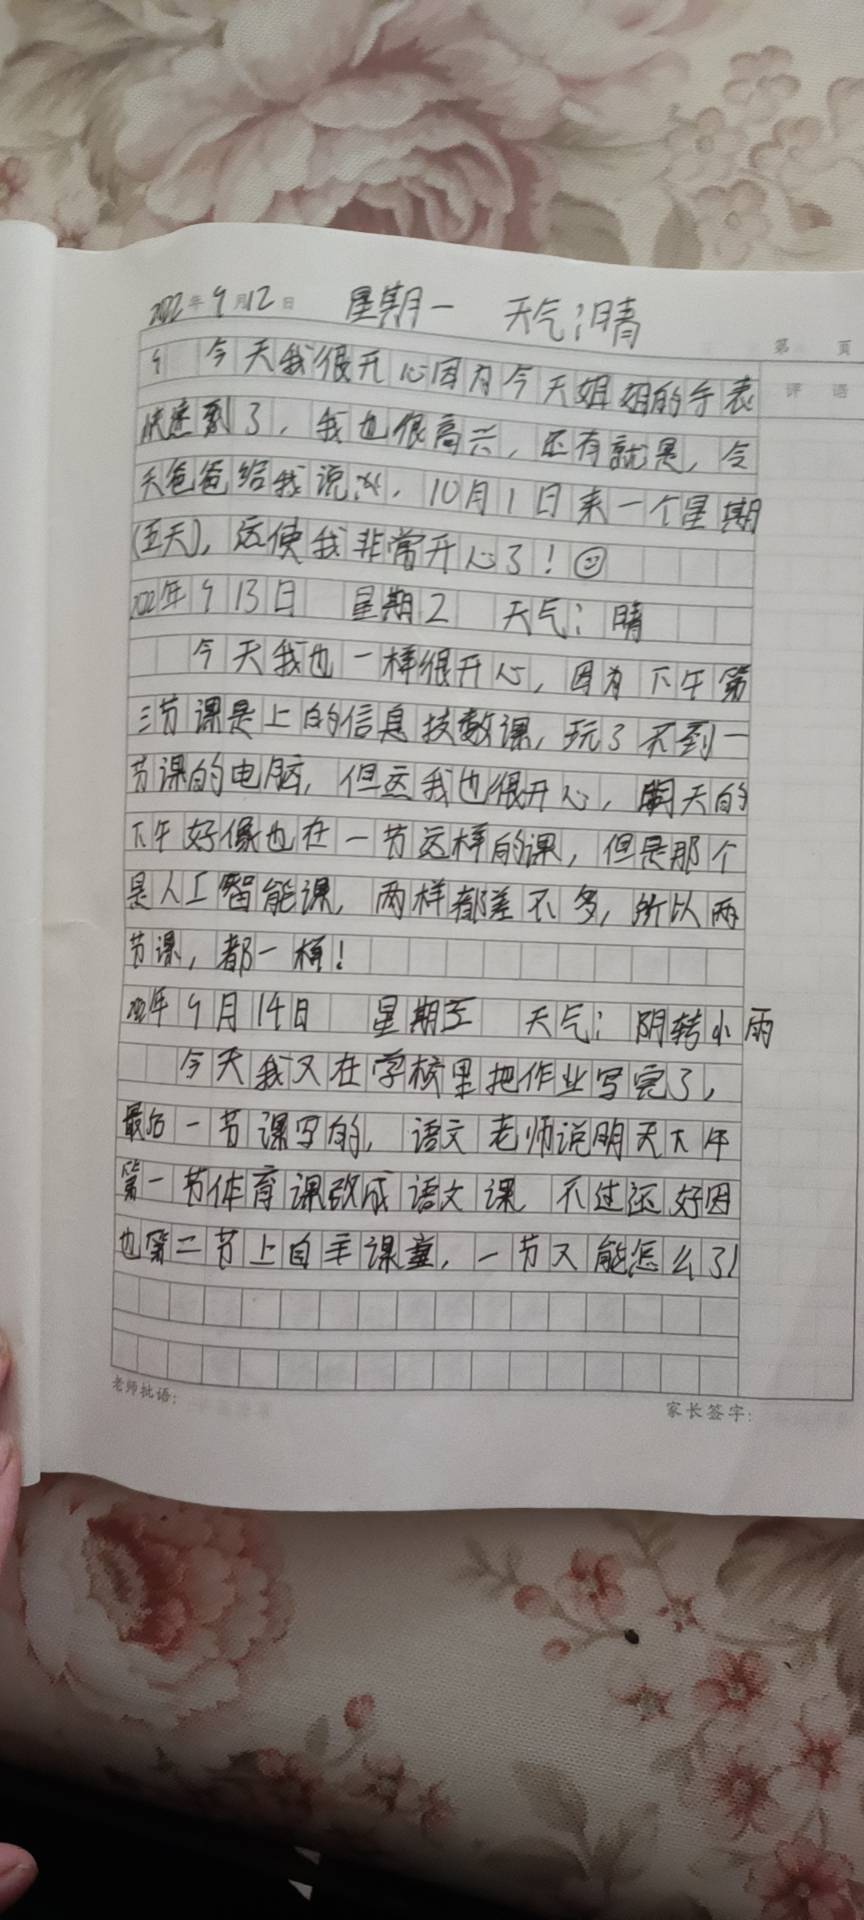 2022年9月12日 星期一 天气:晴
第 页
评语
今天我很开心因为今天姐姐的手表
快递到了，我也很高兴，还有就是，今
天爸爸给我说，10月1日来一个星期
(五天)，这使我非常开心了！
2022年9 13日 星期2 天气：晴
今天我也一样很开心，因为下午第
三节课是上的信息技数课，玩了不到一
节课的电脑，但这我也很开心，明天的
下午好像也在一节这样的课，但是那个
是人工智能课，两样都差不多，所以两
节课，都一样！
2022年9月14日 星期三 天气：阴转小雨
今天我又在学校里把作业写完了，
最后一节课写的，语文老师说明天下午
第一节体育课改成语文课 不过还好因
也第二节上自主课堂，一节又能怎么了！
老师批语：
家长签字：